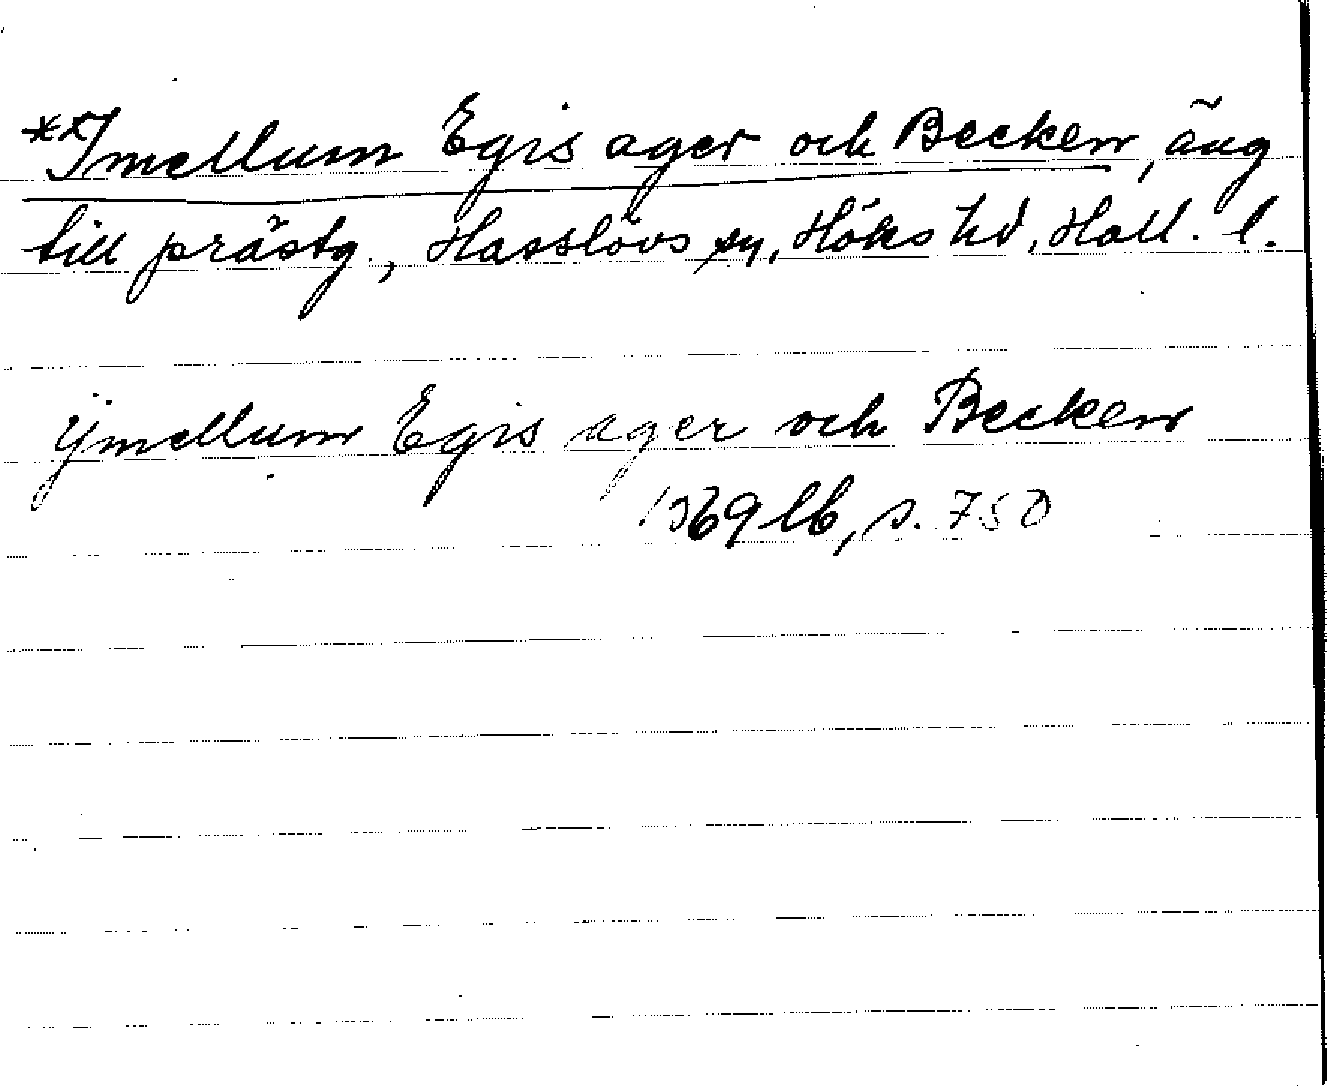 **Imellum Egis ager och Becken, äng
till prästg., Hasslövs sn, Höks hd, Hall. l.
ÿmellum Egis ager och Becken
1569 lb, s. 750